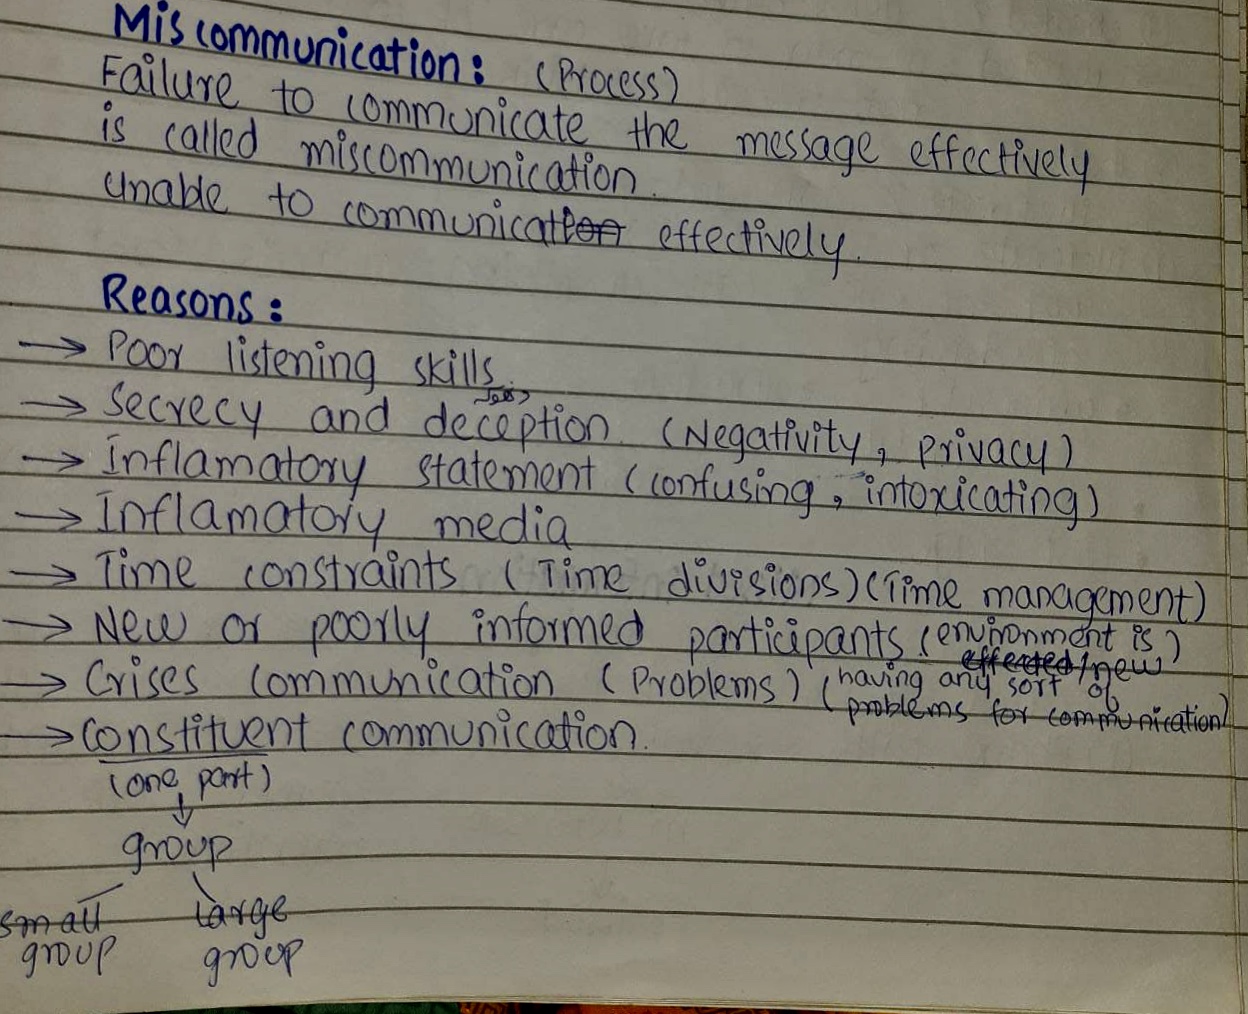 Miscommunication: (Process)
Failure to communicate the message effectively
is called miscommunication.
Unable to communication effectively.
Reasons:
→ Poor listening skills.
→ Secrecy and deception. (Negativity, privacy)
→ Inflamatory statement (confusing, intoxicating)
→ Inflamatory media
→ Time constraints (Time divisions) (Time management)
→ New or poorly informed participants (environment is)
effected/new
→ Crises communication (Problems) (having any sort of
problems for communication)
→ Constituent communication.
(one part)
↓
group
small large
group group